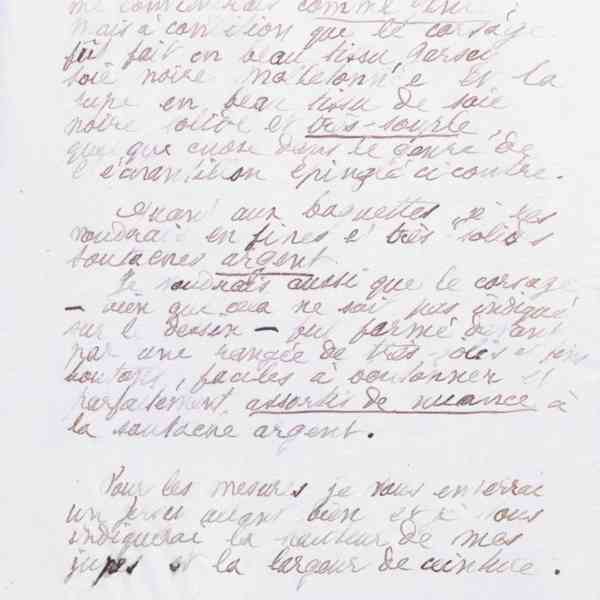 me conviendrais comme
mais à condition que le corsage
fût fait en beau tissu,
soie noire et la
jupe en beau tissu de soie
noire solide et très-souple,
quelque chose dans le genre de
l'échantillon épinglé ci contre.
Quant aux baguettes, je les
voudrais en fines et très solides
soutaches argent
Je voudrais aussi que le corsage
— bien que cela ne soit pas indiqué
sur le dessin — fut fermé devant
par une rangée de très jolis et
boutons, faciles à boutonner et
parfaitement assortis de nuance à
la soutache argent.
Pour les mesures je vous enverrai
un allant bien et je vous
indiquerai la hauteur de mes
jupes et la largeur de ceinture.